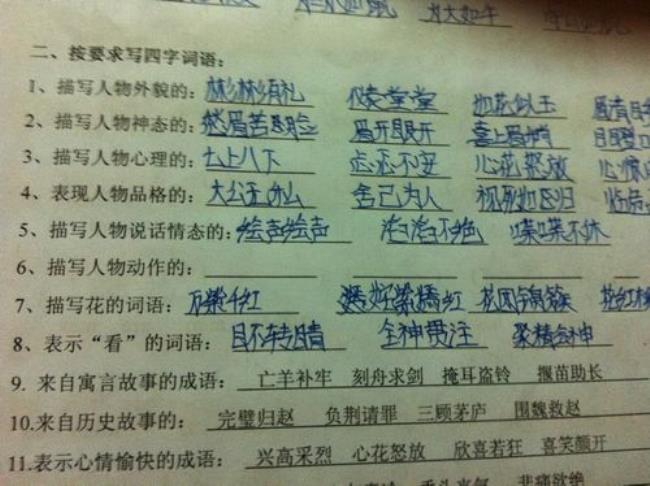 大如牛
二、按要求写四字词语:
1、描写人物外貌的: 彬彬有礼 仪表堂堂 如花似玉 眉清目
2、描写人物神态的: 愁眉苦脸 眉开眼 喜上眉梢 目瞪口
3、描写人物心理的: 七上八下 忐忑不安 心花怒放 心惊
4、表现人物品格的: 大公无私 舍己为人 视死如归 临危
5、描写人物说话情态的: 绘声绘声 滔滔不绝 喋喋不休
6、描写人物动作的:
7、描写花的词语: 万紫千红 姹紫嫣红 花团锦簇 花红
8、表示“看”的词语: 目不转睛 全神贯注 聚精会神
9. 来自寓言故事的成语: 亡羊补牢 刻舟求剑 掩耳盗铃 揠苗助长
10.来自历史故事的: 完璧归赵 负荆请罪 三顾茅庐 围魏救赵
11.表示心情愉快的成语: 兴高采烈 心花怒放 欣喜若狂 喜笑颜开
垂头丧气 悲痛欲绝